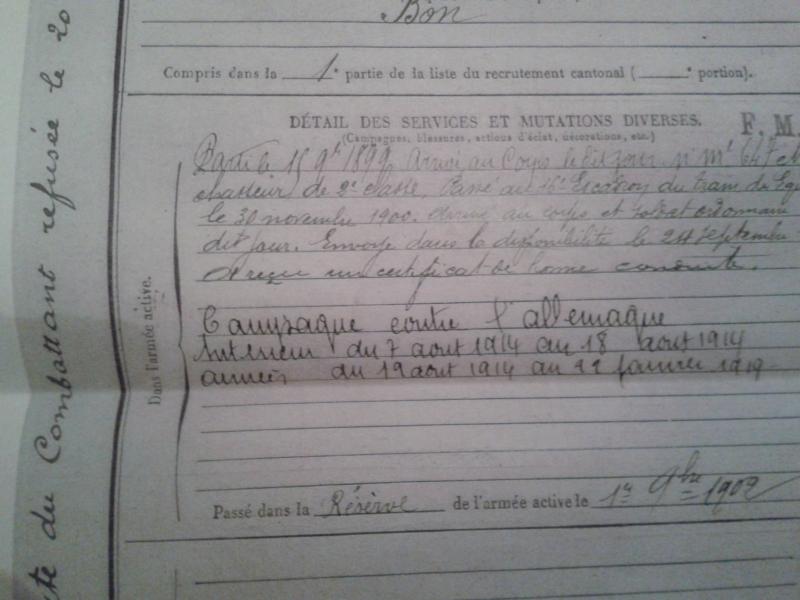 Bon
Compris dans la 1e partie de la liste du recrutement cantonal ( e portion).
DÉTAIL DES SERVICES ET MUTATIONS DIVERSES. F. M.
(Campagnes, blessures, actions d'éclat, décorations, etc.)
Parti le 15 9bre 1899. Arrivé au Corps le dit jour, n° mle 647
chasseur de 2e classe. Passé au 16e Escadron du train
le 30 novembre 1900. Arrivé au corps et soldat ordonnance
dit jour. Envoyé dans la disponibilité le 24 septembre
A reçu un certificat de bonne conduite.
Campagne contre l'allemagne
Intérieur du 7 aout 1914 au 18 aout 1914
armées du 19 aout 1914 au 11 janvier 1919
Dans l'armée active.
Passé dans la Réserve de l'armée active le 1er 9bre 1902
du Combattant refusée le 20